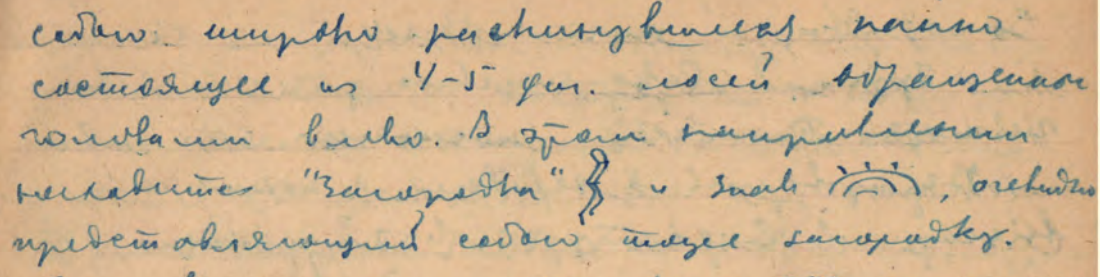 собою широко раскинувшееся панно
состоящее из 4-5 фиг. лосей обращенных
головами влево. В этом направлении
находится "загородка" и знак , очевидно
представляющий собою тоже загородку.